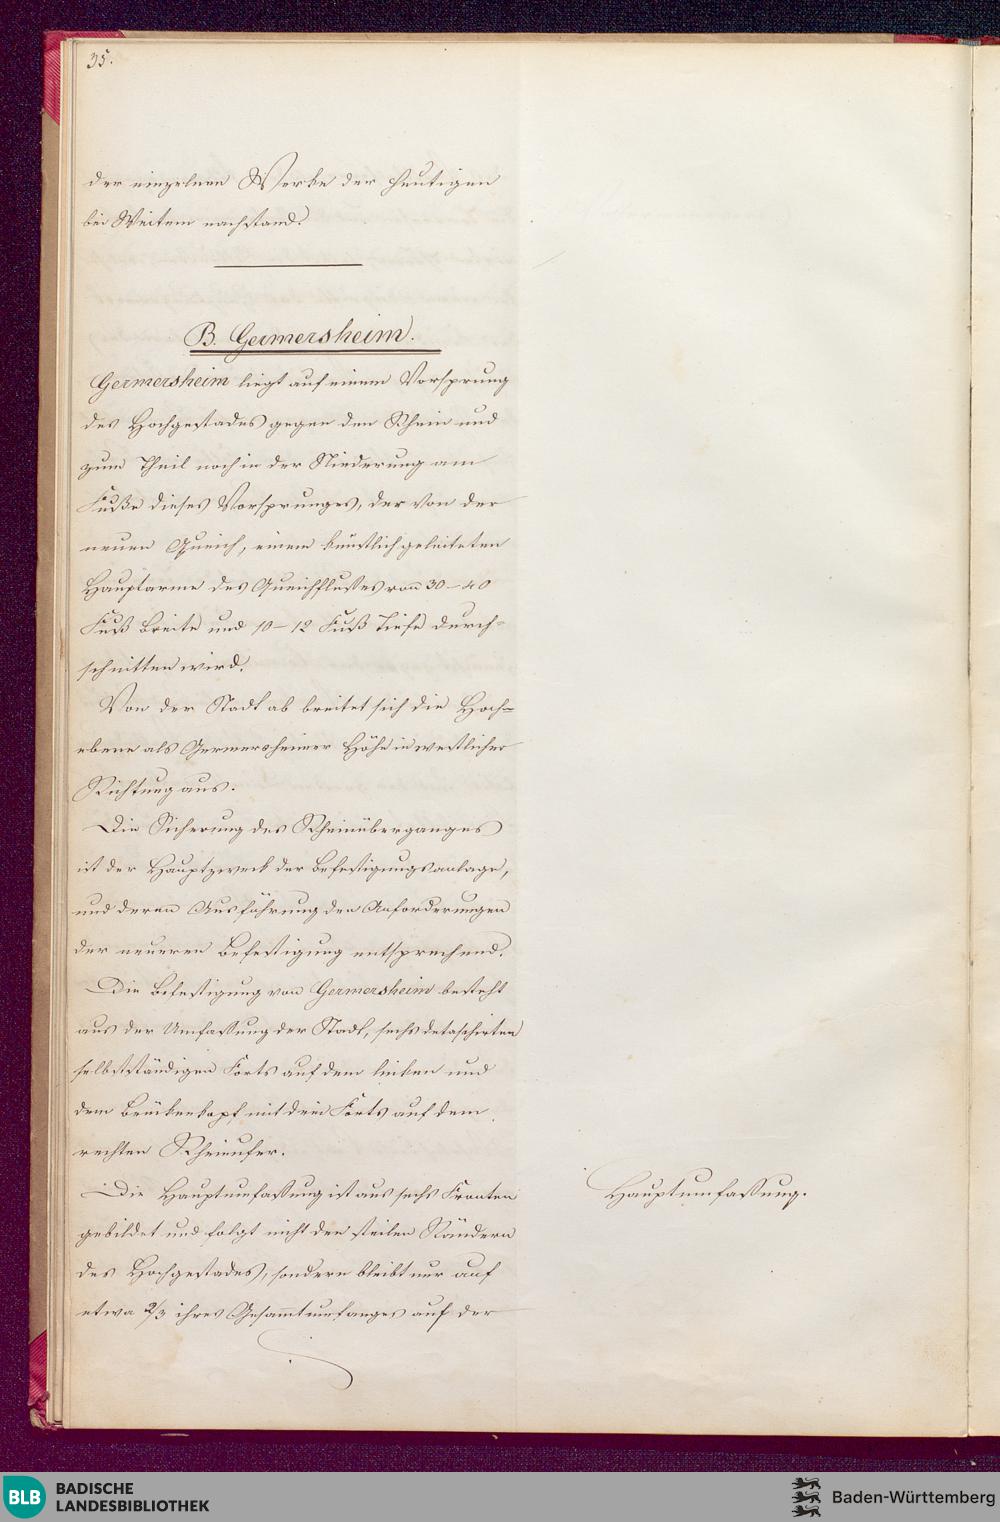 35.
der einzelnen Werke der heutigen
bei Weitem nachstand.
B. Germersheim.
Germersheim liegt auf einem Vorsprung
des Hochgestades gegen den Rhein und
zum Theil noch in der Niederung am
Fuße dieses Vorsprunges, der von der
neuen Queich, einem künstlich geleiteten
Hauptarme des Queichflußes von 30–40
Fuß Breite und 10–12 Fuß Tiefe durch-
schnitten wird.
Von der Stadt ab breitet sich die Hoch-
ebene als Germersheimer Höhe in westlicher
Richtung aus.
Die Sicherung des Rheinüberganges
ist der Hauptzweck der Befestigungsanlage,
und deren Ausführung den Anforderungen
der neueren Befestigung entsprechend.
Die Befestigung von Germersheim besteht
aus der Umfaßung der Stadt, sechs detaschirten
selbstständigen Forts auf dem linken und
dem Brückenkopf mit drei Forts auf dem
rechten Rheinufer.
Die Hauptumfaßung ist aus sechs Fronten
gebildet und folgt nicht den steilen Rändern
des Hochgestades, sondern bleibt nur auf
etwa 2/3 ihres Gesammtumfanges auf der
Hauptumfaßung.
BLB BADISCHE
LANDESBIBLIOTHEK
Baden-Württemberg